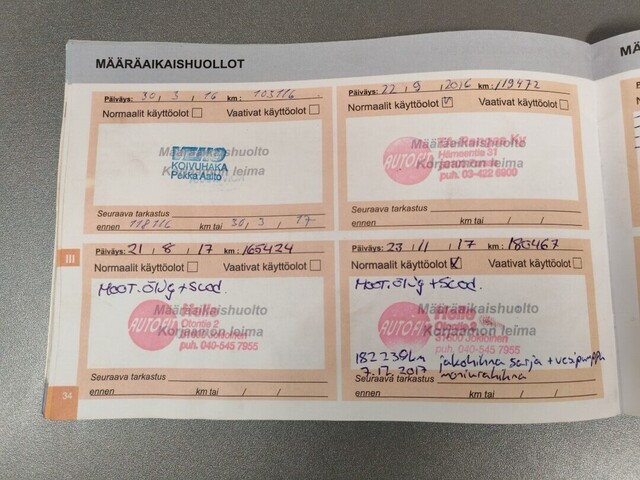 MÄÄRÄAIKAISHUOLLOT
MÄ
Päiväys: 30 / 3 / 16 km: 103116
Normaalit käyttöolot Vaativat käyttöolot
Määräaikaishuolto
Korjaamon leima
VEHO
KOIVUHAKA
Pekka Aalto
Seuraava tarkastus
ennen 118116 km tai 30 / 3 / 17
Päiväys: 22 / 9 / 2016 km: 119472
Normaalit käyttöolot Vaativat käyttöolot
Määräaikaishuolto
Korjaamon leima
AUTOFIT
Hämeentie 31
puh. 03-422 6900
Seuraava tarkastus
ennen km tai / /
III
Päiväys: 21 / 8 / 17 km: 165424
Normaalit käyttöolot Vaativat käyttöolot
MOOT.ÖLJY + SUOD.
Määräaikaishuolto
Korjaamon leima
AUTOFIT
Olontie 2
puh. 040-545 7955
Seuraava tarkastus
ennen km tai / /
Päiväys: 23 / 11 / 17 km: 180467
Normaalit käyttöolot Vaativat käyttöolot
MOOT.ÖLJY + SUOD.
Määräaikaishuolto
Korjaamon leima
AUTOFIT
Olontie 2
31600 Jokioinen
puh. 040-545 7955
182239km jakohihna sarja + vesipumppu
7.12.2017 moniurahihna
Seuraava tarkastus
ennen km tai / /
34